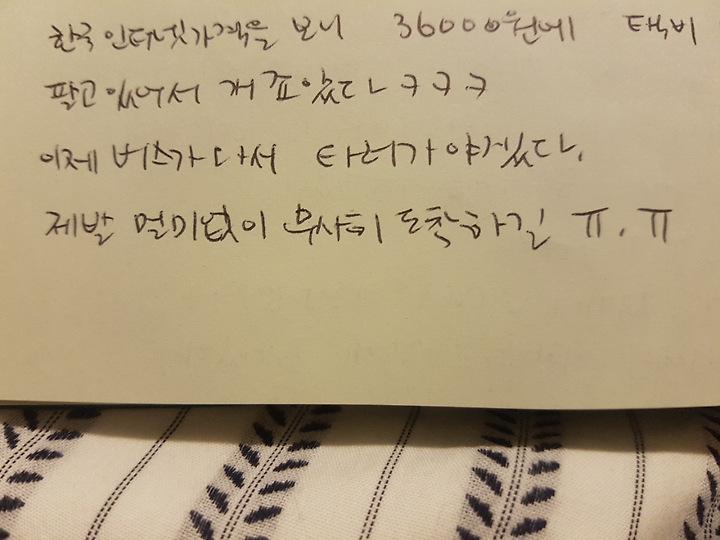 한국 인터넷가격을 보니 36000원에 택비
팔고있어서 개쪼았다ㅋㅋㅋ
이제 버스가 다서 타러가야겠다.
제발 멀미없이 무사히 도착하길 ㅠ.ㅠ